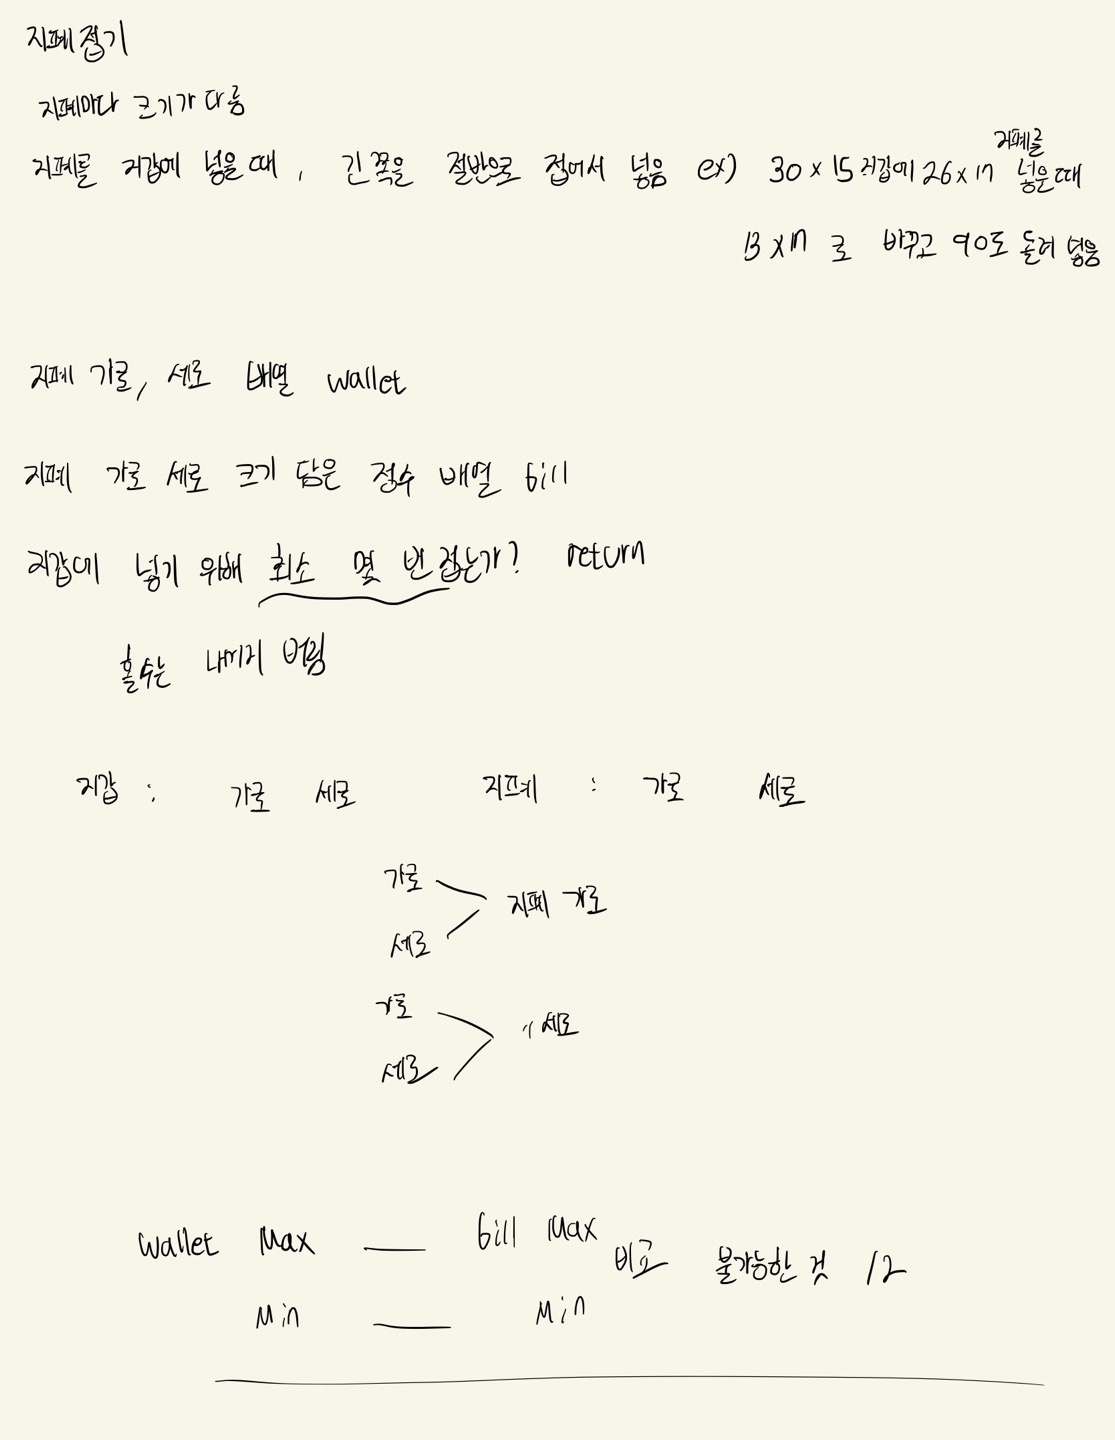 지폐 접기
지폐마다 크기가 다름
지폐를 지갑에 넣을 때, 긴 쪽을 절반으로 접어서 넣음 ex) 30 x 15 지갑에 26 x 17 지폐를 넣을 때
13 x 17 로 바꾸고 90도 돌려 넣음
지폐 가로, 세로 배열 wallet
지폐 가로 세로 크기 담은 정수 배열 bill
지갑에 넣기 위해 최소 몇 번 접는가? return
홀수는 나머지 버림
지갑 : 가로 세로 지폐 : 가로 세로
가로
지폐 가로
세로
가로
〃 세로
세로
wallet Max — bill Max
비교 불가능한 것 /2
Min — Min